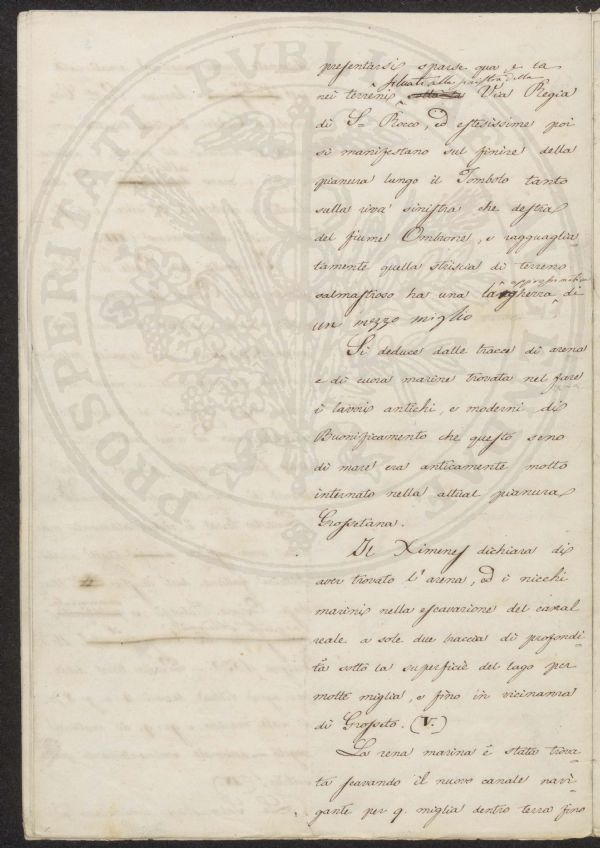 presentarsi sparse qua, e la
situati alla sinistra della
nei terreni Via Regia
di Sn Rocco, ed estesissime poi
si manifestano sul finire della
pianura lungo il Tombolo tanto
sulla riva sinistra che destra
del fiume Ombrone, e ragguaglia-
tamente quella striscia di terreno
approssimativa
salmastroso ha una larghezza di
un mezzo miglio
Si deduce dalle tracce di arena
e di cuora marine trovata nel fare
i lavori antichi, e moderni di
Buonificamento che questo seno
di mare era anticamente molto
internato nella attual pianura
Grossetana.
Il Ximenes dichiara di
aver trovato l'arena, ed i nicchi
marini nella escavazione del canal
reale a sole due braccia di profondi-
tà sotto la superficie del lago per
molte miglia, e fino in vicinanza
di Grosseto. (V.)
La rena marina è stata trova-
ta scavando il nuovo canale navi-
gante per 9. miglia dentro terra fino
PROSPERITATI PUBLICAE